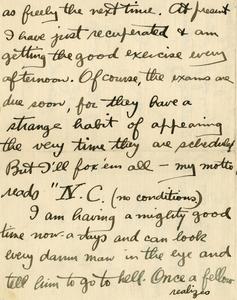 as freely the next time. At present
I have just recuperated & am
getting the good exercise every
afternoon. Of course, the exams are
due soon, for they have a
strange habit of appearing
the very time they are scheduled
But I'll fox 'em all – my motto
reads "N.C. (no conditions)
I am having a mighty good
time now-a-days and can look
every damn man in the eye and
tell him to go to hell. Once a fellow
realizes